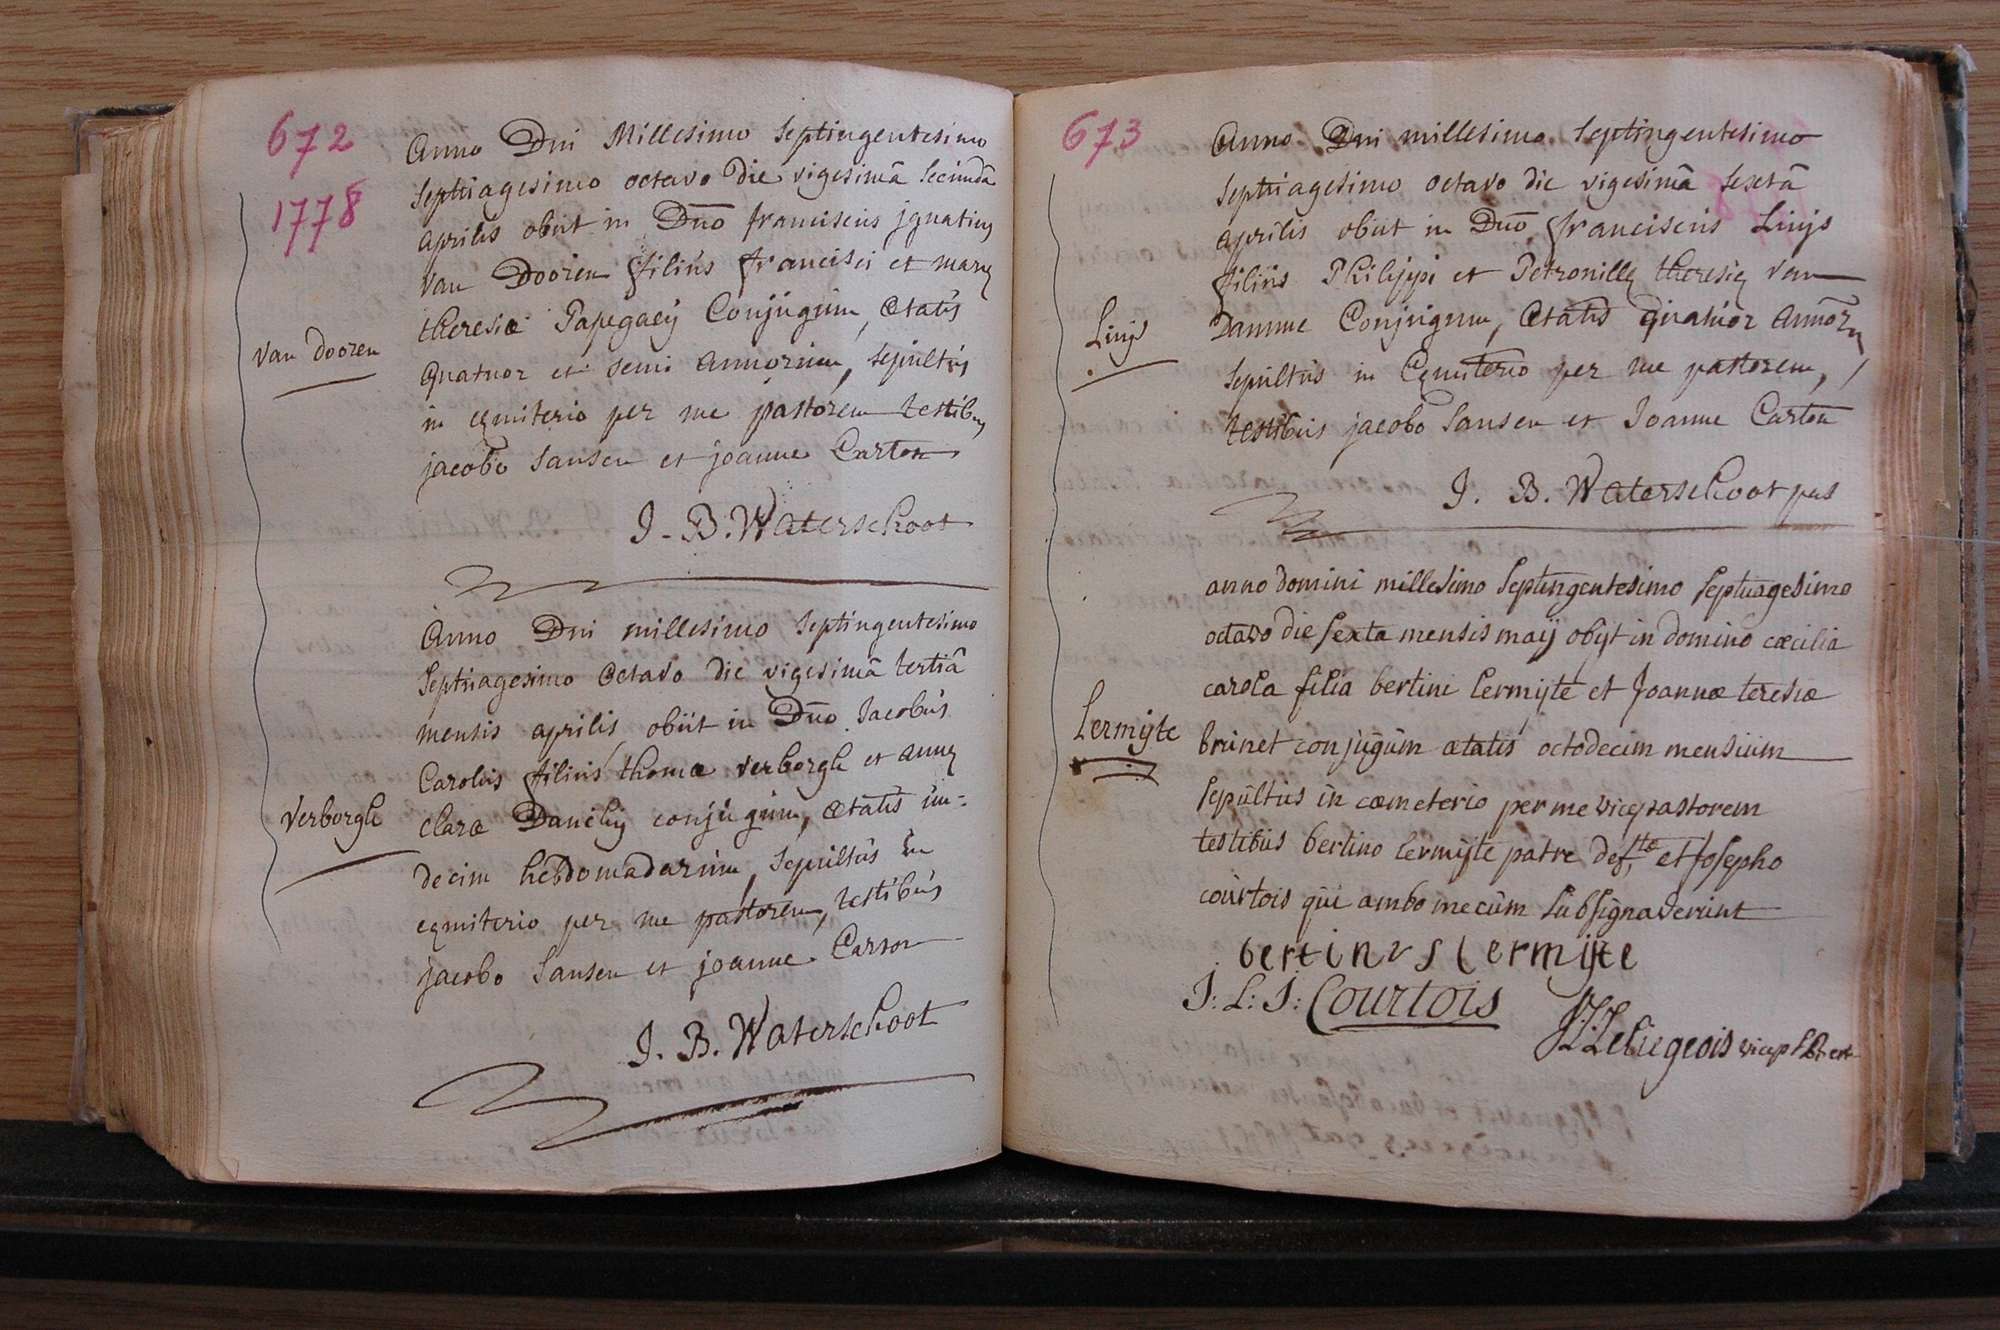 672
1778
Anno Dni Millesimo Septingentesimo
Septuagesimo octavo die vigesimâ Secundâ
Aprilis obiit in Dno franciscus jgnatius
van Dooren filius francisci et mariæ
van Dooren
theresiæ Papegaeij Conjugum, Ætatis
Quatuor et semi annorum, sepultus
in cęmiterio per me pastorem testibus
jacobo Sansen et joanne Carton
J. B. Waterschoot
Anno Dni millesimo Septingentesimo
Septuagesimo Octavo die vigesimâ tertiâ
mensis aprilis obiit in Dno Jacobus
Carolus filius thomæ verborgh et annę
Verborgh
claræ Danelij conjugum, Ætatis un-
decim hebdomadarum, Sepultus in
cęmiterio per me pastorem, testibus
jacobo Sansen et joanne Carton
J. B. Waterschoot
673
Anno Dni millesimo Septingentesimo
Septuagesimo octavo die vigesimâ Sextâ
Aprilis obiit in Dno franciscus Luijs
filius Philippi et Petronillę theresię van
Luijs
Damme Conjugum, Ætatis quatuor Annorum
sepultus in Cęmiterio per me pastorem,
testibus jacobo Sansen et Joanne Carton
J. B. Waterschoot pas
anno domini millesimo septingentesimo septuagesimo
octavo die sexta mensis maij obijt in domino cæcilia
carola filia bertini Lermijte et Joannæ teresiæ
Lermijte
brunet conjugum ætatis octodecim mensium
sepultus in cæmeterio per me vicepastorem
testibus bertino Lermijte patre defte et Josepho
courtois qui ambo mecum subsignaverunt
bertinus lermijte
J: L: J: Courtois
J. J. Leliegeois vicep